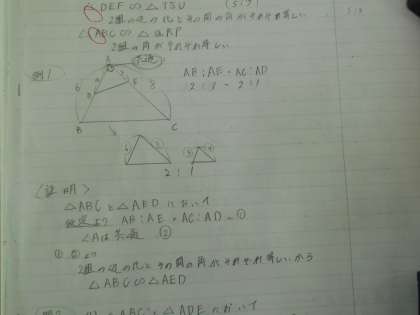 △DEF∽△TSU
2組の辺の比とその間の角がそれぞれ等しい
△ABC∽△QRP
2組の角がそれぞれ等しい
例1
共通
A
AB:AE=AC:AD
E
D
6
8
B
C
2:1
〈証明〉
△ABCと△AEDにおいて
仮定より AB:AE=AC:AD—①
∠Aは共通 ②
①②より
2組の辺の比とその間の角がそれぞれ等しいから
△ABC∽△AED
△ABCと△ADEにおいて